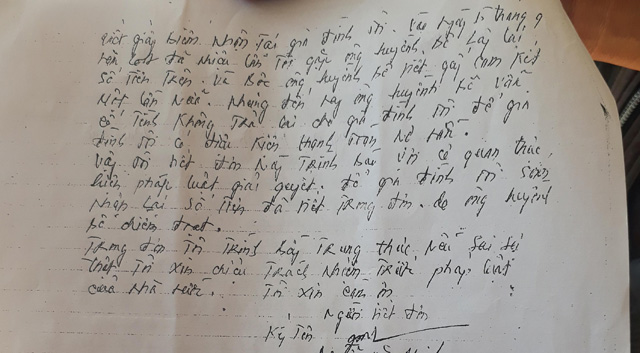 viết giấy biên nhận tại gia đình tôi. Vào ngày 15 tháng 9
năm tôi đã nhiều lần tới gặp ông Huỳnh Bê lấy lại
số tiền trên. Và Bốc ông Huỳnh Bê viết giấy cam kết
một lần nữa. Nhưng đến nay ông Huỳnh Bê vẫn
cố tình không trả lại cho gia đình tôi để gia
đình tôi có điều kiện thanh toán nợ nần.
Vậy tôi viết đơn này trình báo với cơ quan thúc,
hiện pháp luật giải quyết. Để gia đình tôi sớm
nhận lại số tiền đã viết trong đơn. do ông Huỳnh
Bê chiếm đoạt.
Trong đơn tôi trình bày trung thực, nếu sai sự
thật tôi xin chịu trách nhiệm trước pháp luật
của nhà nước. Tôi xin cảm ơn
Người viết đơn
Ký tên